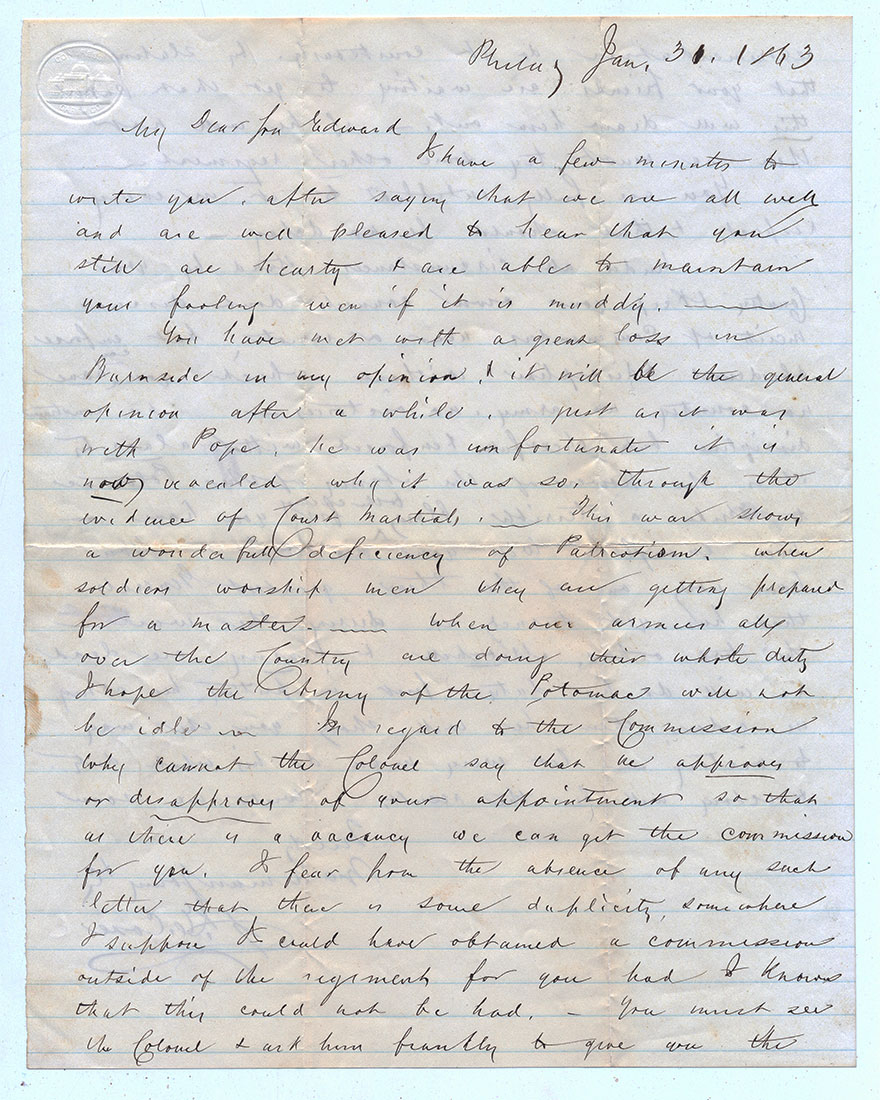 Philad Jan. 31. 1863
My Dear Son Edward
I have a few minutes to
write you. after saying that we are all well
and are well pleased to hear that you
still are hearty & are able to maintain
your footing even if it is muddy.
You have met with a great loss in
Burnside in my opinion, & it will be the general
opinion after a while. just as it was
with Pope. he was unfortunate it is
now revealed why it was so. through the
evidence of Court Martials. This war shows
a wonderfull deficiency of Patriotism. when
soldiers worship men they are getting prepared
for a master. When our armies all
over the Country are doing their whole duty
I hope the Army of the Potomac will not
be idle In regard to the Commission
why cannot the Colonel say that he approves
or disapproves of your appointment so that
as there is a vacancy we can get the commission
for you. I fear from the absence of any such
letter that there is some duplicity somewhere
I suppose I could have obtained a commission
outside of the regiment for you had I known
that this could not be had. - You must see
the Colonel & ask him frankly to give you the